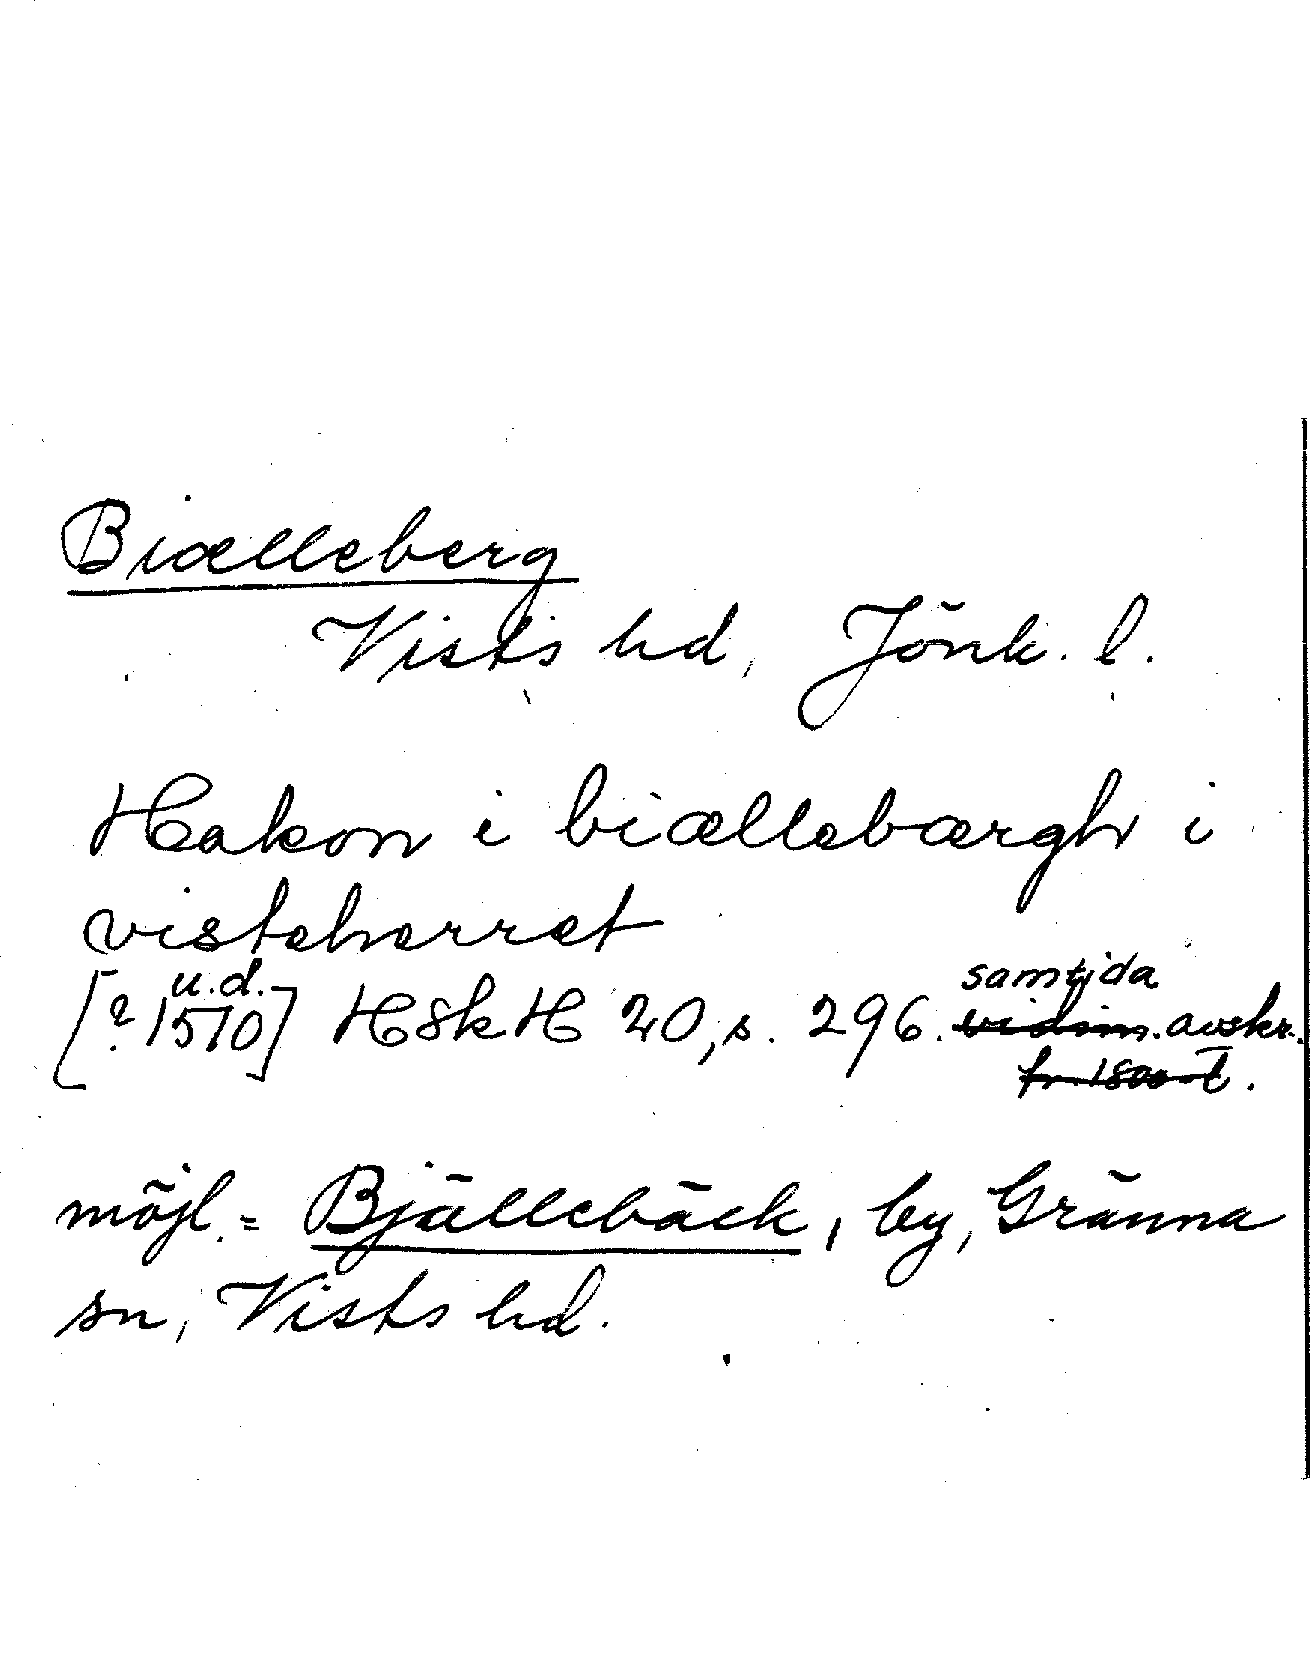 Biælleberg
Vists hd, Jönk. l.
Hakon i biællebærgh i
visteherret
u.d. samtida
[? 1510] HSkH 20, s. 296. vidim. avskr.
fr. 1800-t.
möjl. = Bjällebäck, by, Gränna
sn, Vists hd.